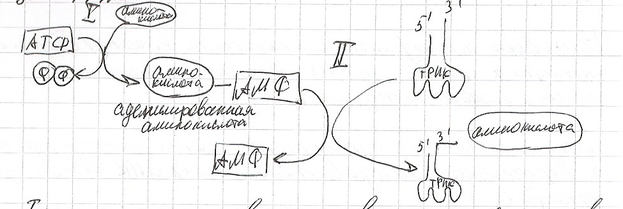 I
амино-
кислота
АТФ
Ф Ф
амино-
кислота
АМФ
аденилированная
аминокислота
АМФ
II
5' 3'
тРНК
5' 3'
тРНК
аминокислота